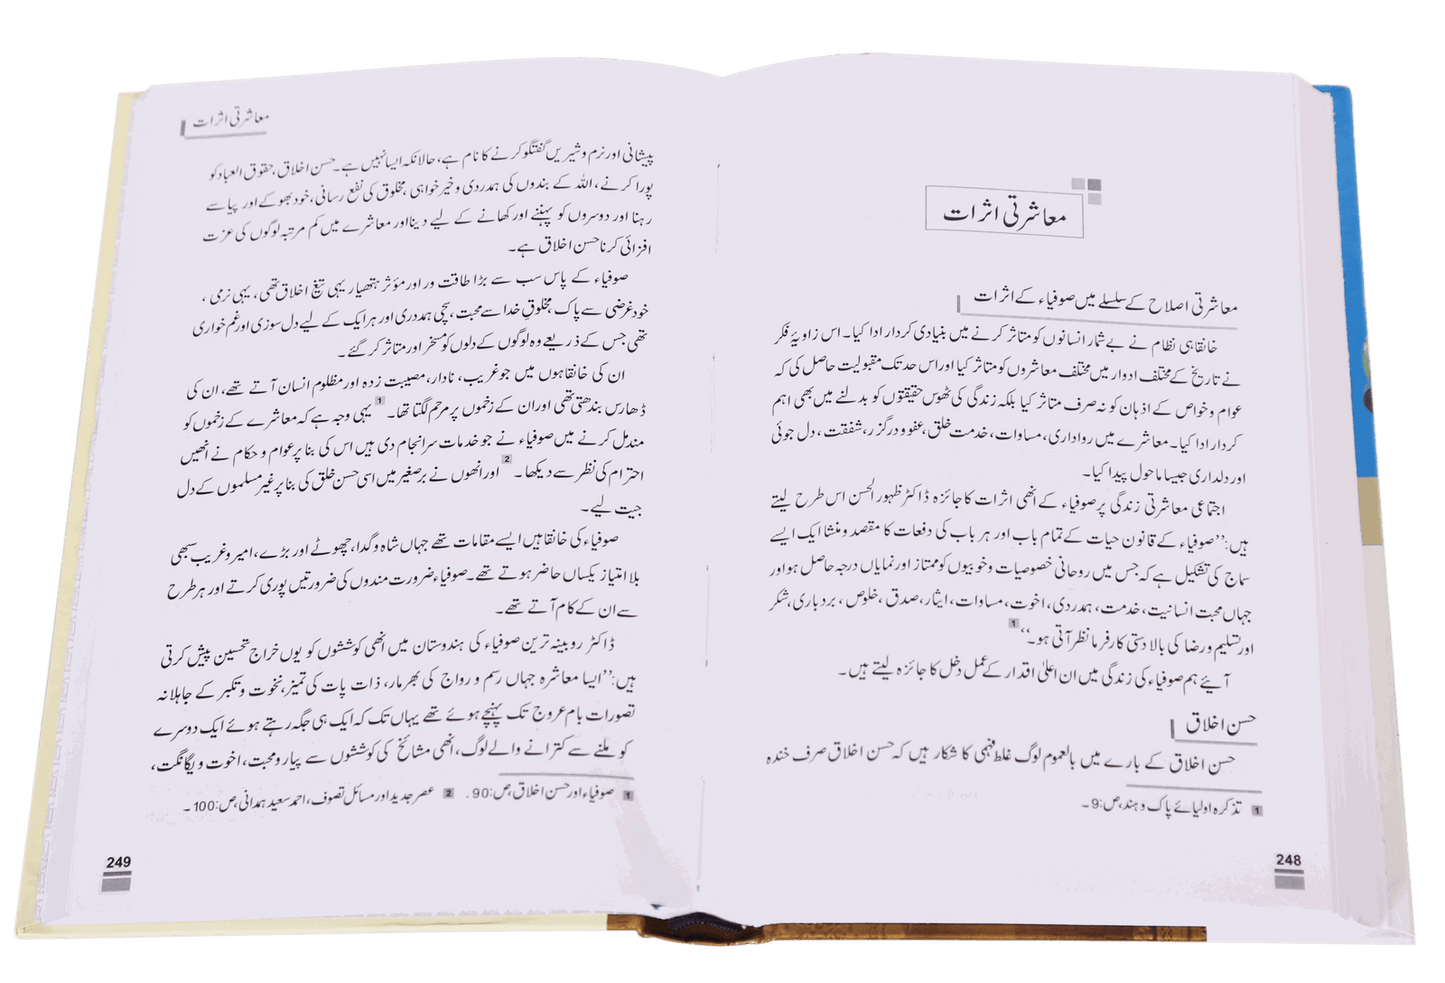 معاشرتی اثرات
معاشرتی اصلاح کے سلسلے میں صوفیاء کے اثرات
خانقاہی نظام نے بے شمار انسانوں کو متاثر کرنے میں بنیادی کردار ادا کیا۔ اس زاویۂ فکر
نے تاریخ کے مختلف ادوار میں مختلف معاشروں کو متاثر کیا اور اس حد تک مقبولیت حاصل کی کہ
عوام و خواص کے اذہان کو نہ صرف متاثر کیا بلکہ زندگی کی ٹھوس حقیقتوں کو بدلنے میں بھی اہم
کردار ادا کیا۔ معاشرے میں رواداری، مساوات، خدمت خلق، عفو و درگزر، شفقت، دل جوئی
اور دلداری جیسا ماحول پیدا کیا۔
اجتماعی معاشرتی زندگی پر صوفیاء کے انھی اثرات کا جائزہ ڈاکٹر ظہور الحسن اس طرح لیتے
ہیں: ’’صوفیاء کے قانون حیات کے تمام باب اور ہر باب کی دفعات کا مقصد و منشا ایک ایسے
سماج کی تشکیل ہے کہ جس میں روحانی خصوصیات و خوبیوں کو ممتاز اور نمایاں درجہ حاصل ہو اور
جہاں محبت انسانیت، خدمت، ہمدردی، اخوت، مساوات، ایثار، صدق، خلوص، بردباری، شکر
اور تسلیم و رضا کی بالا دستی کارفرما نظر آتی ہو۔‘‘ 1
آئیے ہم صوفیاء کی زندگی میں ان اعلیٰ اقدار کے عمل دخل کا جائزہ لیتے ہیں۔
حسن اخلاق
حسن اخلاق کے بارے میں بالعموم لوگ غلط فہمی کا شکار ہیں کہ حسن اخلاق صرف خندہ
1 تذکرہ اولیائے پاک و ہند، ص: 9۔
248
معاشرتی اثرات
پیشانی اور نرم و شیریں گفتگو کرنے کا نام ہے، حالانکہ ایسا نہیں ہے۔ حسن اخلاق حقوق العباد کو
پورا کرنے، اللہ کے بندوں کی ہمدردی و خیر خواہی مخلوق کی نفع رسانی، خود بھوکے اور پیاسے
رہنا اور دوسروں کو پہننے اور کھانے کے لیے دینا اور معاشرے میں کم مرتبہ لوگوں کی عزت
افزائی کرنا حسن اخلاق ہے۔
صوفیاء کے پاس سب سے بڑا طاقت ور اور مؤثر ہتھیار یہی تیغ اخلاق تھی، یہی نرمی،
خود غرضی سے پاک مخلوقِ خدا سے محبت، سچی ہمدردی اور ہر ایک کے لیے دل سوزی اور غم خواری
تھی جس کے ذریعے وہ لوگوں کے دلوں کو مسخر اور متاثر کر گئے۔
ان کی خانقاہوں میں جو غریب، نادار، مصیبت زدہ اور مظلوم انسان آتے تھے، ان کی
ڈھارس بندھتی تھی اور ان کے زخموں پر مرہم لگتا تھا۔ 1 یہی وجہ ہے کہ معاشرے کے زخموں کو
مندمل کرنے میں صوفیاء نے جو خدمات سرانجام دی ہیں اس کی بنا پر عوام و حکام نے انھیں
احترام کی نظر سے دیکھا۔ 2 اور انھوں نے برصغیر میں اسی حسن خلق کی بنا پر غیر مسلموں کے دل
جیت لیے۔
صوفیاء کی خانقاہیں ایسے مقامات تھے جہاں شاہ و گدا، چھوٹے اور بڑے، امیر و غریب سبھی
بلا امتیاز یکساں حاضر ہوتے تھے۔ صوفیاء ضرورت مندوں کی ضرورتیں پوری کرتے اور ہر طرح
سے ان کے کام آتے تھے۔
ڈاکٹر روبینہ ترین صوفیاء کی ہندوستان میں انھی کوششوں کو یوں خراج تحسین پیش کرتی
ہیں: ’’ایسا معاشرہ جہاں رسم و رواج کی بھرمار، ذات پات کی تمیز، نخوت و تکبر کے جاہلانہ
تصورات بام عروج تک پہنچے ہوئے تھے یہاں تک کہ ایک ہی جگہ رہتے ہوئے ایک دوسرے
کو ملنے سے کترانے والے لوگ، انھی مشائخ کی کوششوں سے پیار و محبت، اخوت و یگانگت،
1 صوفیاء اور حسن اخلاق، ص: 90۔ 2 عصر جدید اور مسائل تصوف، احمد سعید ہمدانی، ص: 100۔
249